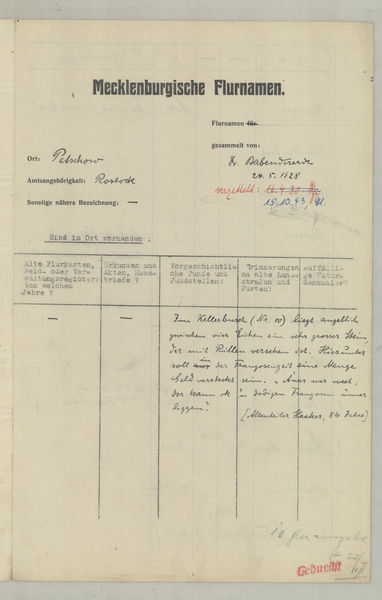 Mecklenburgische Flurnamen.
Flurnamen für
Ort: Petschow
gesammelt von:
Dr. Babendererde
24.5.1928
Amtsangehörigkeit: Rostock
verzettelt: 16.4.30
15.10.43
Sonstige nähere Bezeichnung: —
Sind in Ort vorhanden :
Alte Flurkarten,
Feld- oder Ver-
waltungsregister?
Von welchem
Jahre ?
Urkunden und
Akten, Haus-
briefe ?
Vorgeschichtli-
che Funde und
Fundstellen?
Erinnerungen
an alte Land-
straßen und
Furten?
Auffälli-
ge Natur-
denkmäler?
— —
Im Kellerbusch (No. 10) liegt angeblich
zwischen vier Eichen ein sehr grosser Stein,
der mit Rillen versehen ist. Hierunter
soll aus der Franzosenzeit eine Menge
Geld versteckt sein. „Äwer wer weet,
der kann ok 'n dodigen Franzosen inner
liggen".
(Altenteiler Haaker, 84 Jahre)
Gebucht